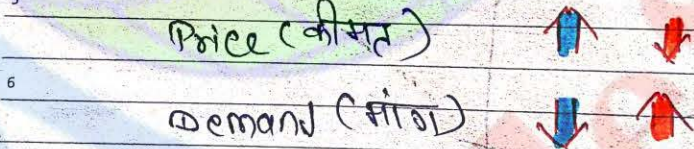 Price (कीमत) ↑ ↓
6
Demand (मांग) ↓ ↑